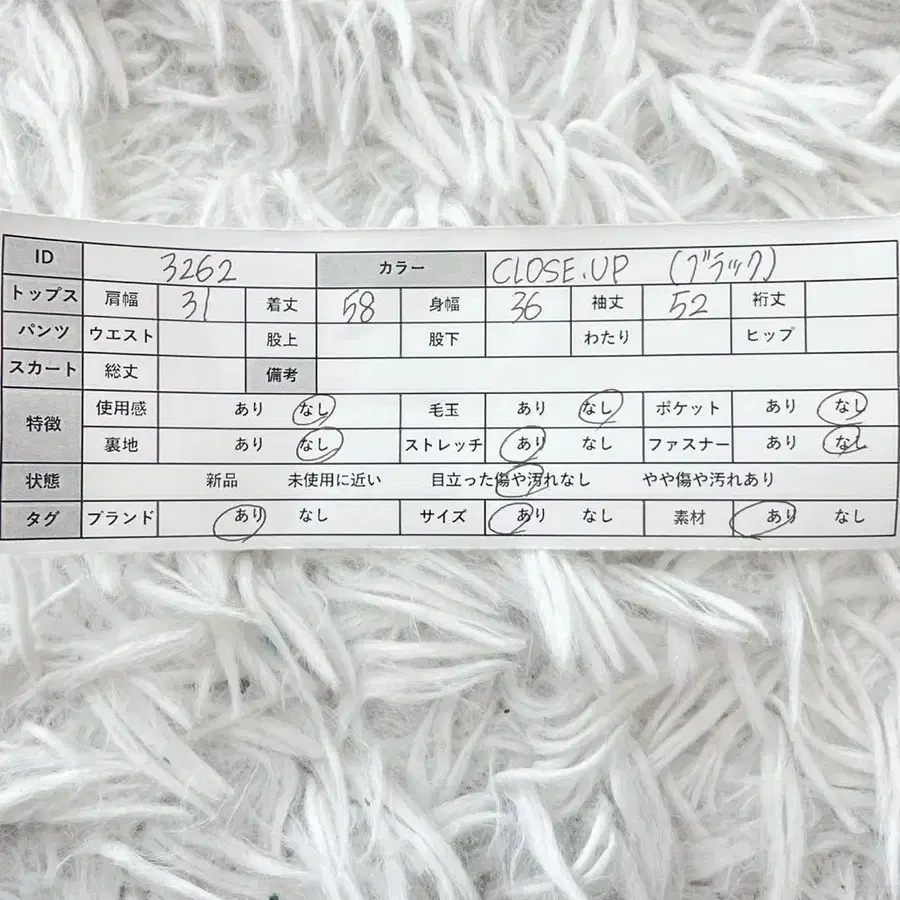 ID 3262 カラー CLOSE.UP (ブラック)
トップス 肩幅 31 着丈 58 身幅 36 袖丈 52 裄丈
パンツ ウエスト 股上 股下 わたり ヒップ
スカート 総丈 備考
特徴 使用感 あり なし 毛玉 あり なし ポケット あり なし
裏地 あり なし ストレッチ あり なし ファスナー あり なし
状態 新品 未使用に近い 目立った傷や汚れなし やや傷や汚れあり
タグ ブランド あり なし サイズ あり なし 素材 あり なし